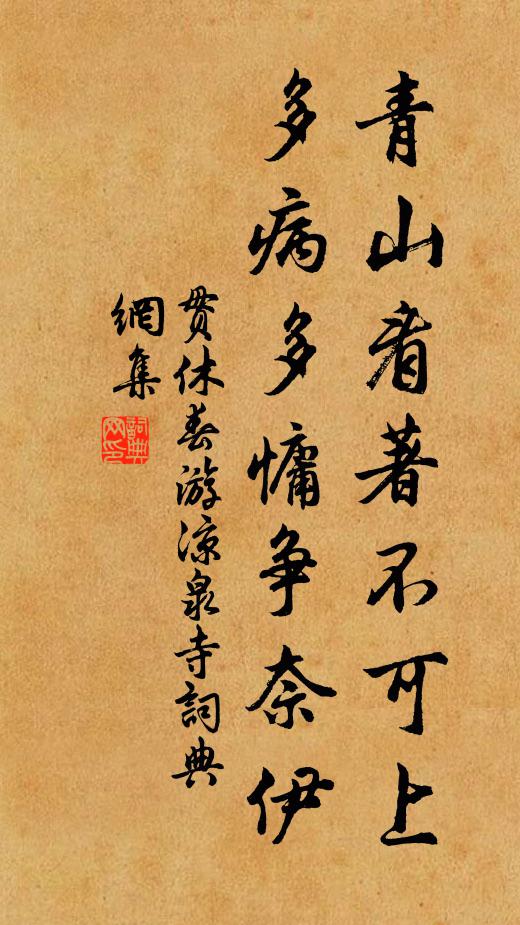 青山看著不可上
多病多慵争奈伊
贯休春游凉泉寺詞典
網集
詞典網印